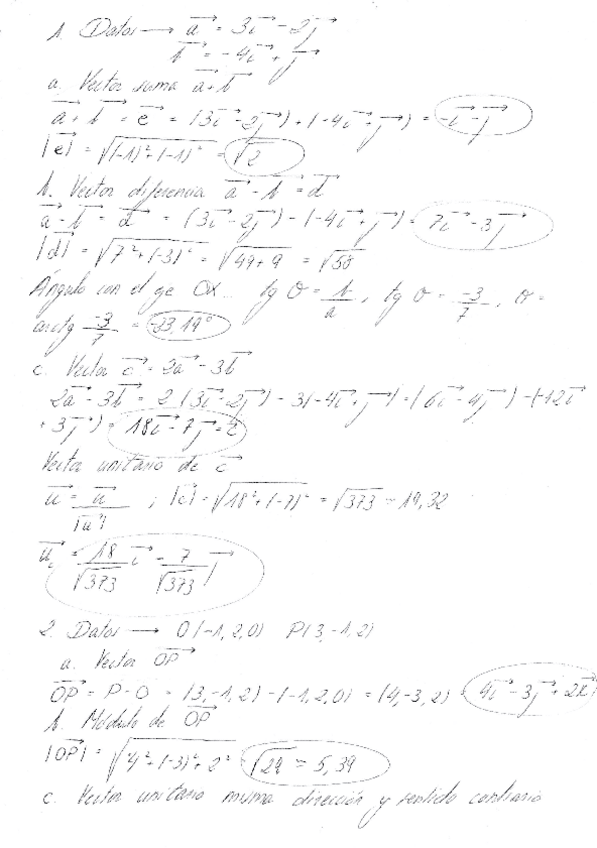 1. Datos → a⃗ = 3i⃗ - 2j⃗
b⃗ = -4i⃗ + j⃗
a. Vector suma a⃗+b⃗
a⃗+b⃗ = e⃗ = (3i⃗-2j⃗)+(-4i⃗+j⃗) = -i⃗-j⃗
|e⃗| = √((-1)²+(-1)²) = √2
b. Vector diferencia a⃗-b⃗=d⃗
a⃗-b⃗ = d⃗ = (3i⃗-2j⃗)-(-4i⃗+j⃗) = 7i⃗-3j⃗
|d⃗| = √(7²+(-3)²) = √(49+9) = √58
Ángulo con el eje OX... tg θ = b/a, tg θ = -3/7, θ =
arctg -3/7 = -23,19°
c. Vector c⃗ = 2a⃗-3b⃗
2a⃗-3b⃗ = 2(3i⃗-2j⃗)-3(-4i⃗+j⃗) = (6i⃗-4j⃗)-(-12i⃗
+3j⃗) = 18i⃗-7j⃗ = c⃗
Vector unitario de c⃗
u⃗ = u⃗/|u⃗| ; |c⃗| = √(18²+(-7)²) = √373 = 19,32
u⃗c = 18/√373 i⃗ - 7/√373 j⃗
2. Datos → O(-1,2,0) P(3,-1,2)
a. Vector OP⃗
OP⃗ = P-O = (3,-1,2)-(-1,2,0) = (4,-3,2) = 4i⃗-3j⃗+2k⃗
b. Módulo de OP⃗
|OP⃗| = √(4²+(-3)²+2²) = √29 = 5,39
c. Vector unitario misma dirección y sentido contrario